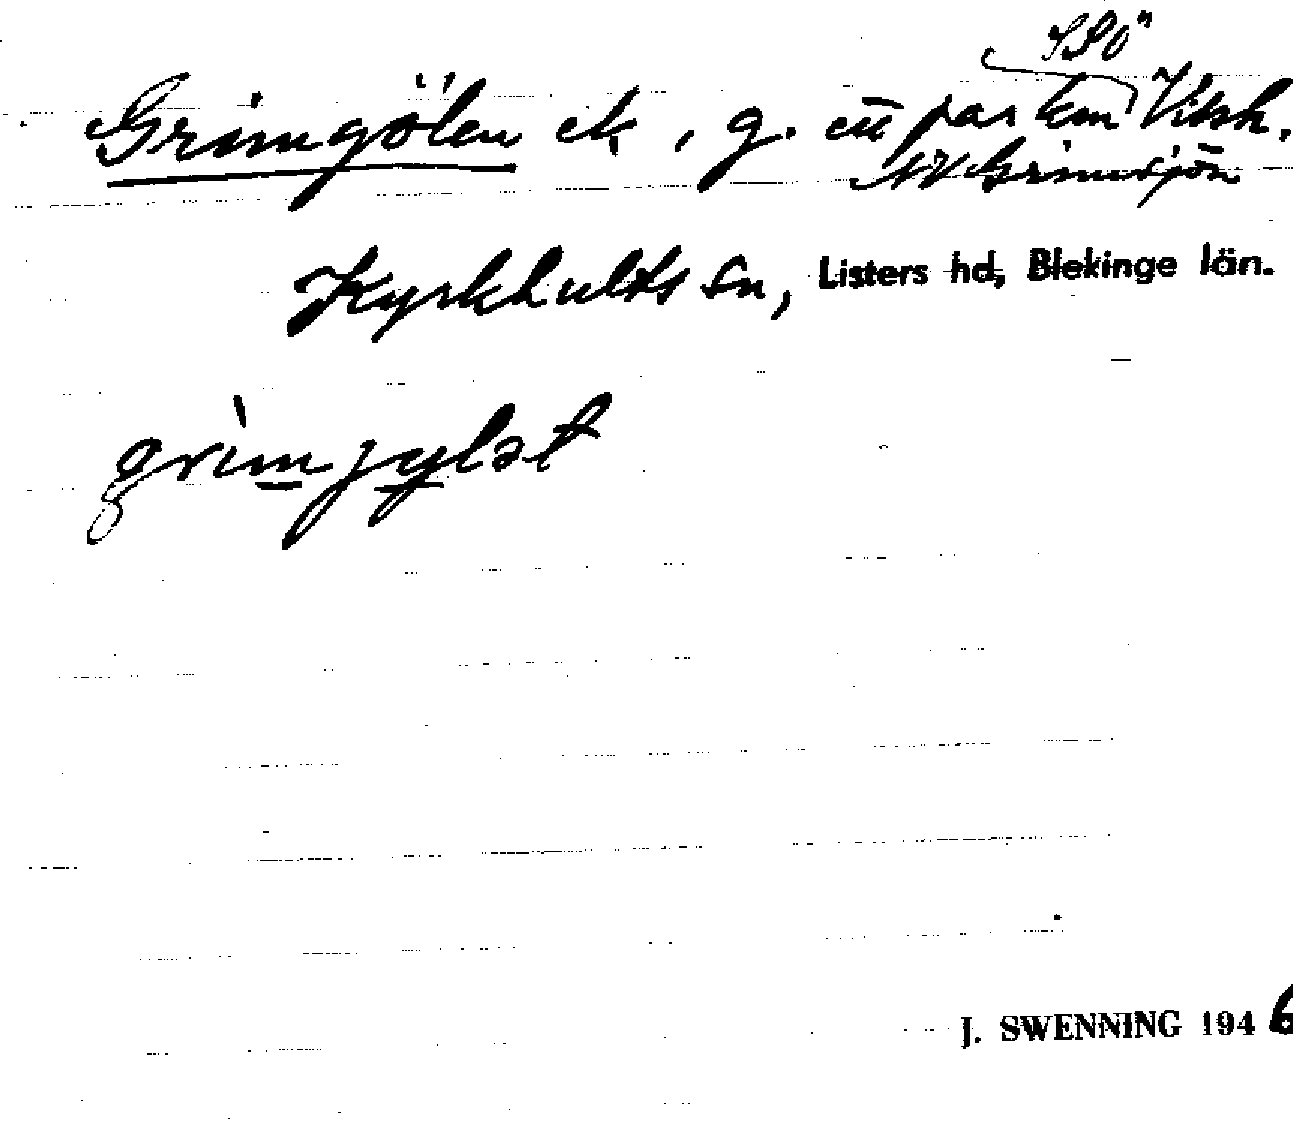 SSÖ
Grimgölen ek, g. ett par km
NV Grimsjön
Kyrkhults sn, Listers hd, Blekinge län.
grimjylət
J. SWENNING 1946